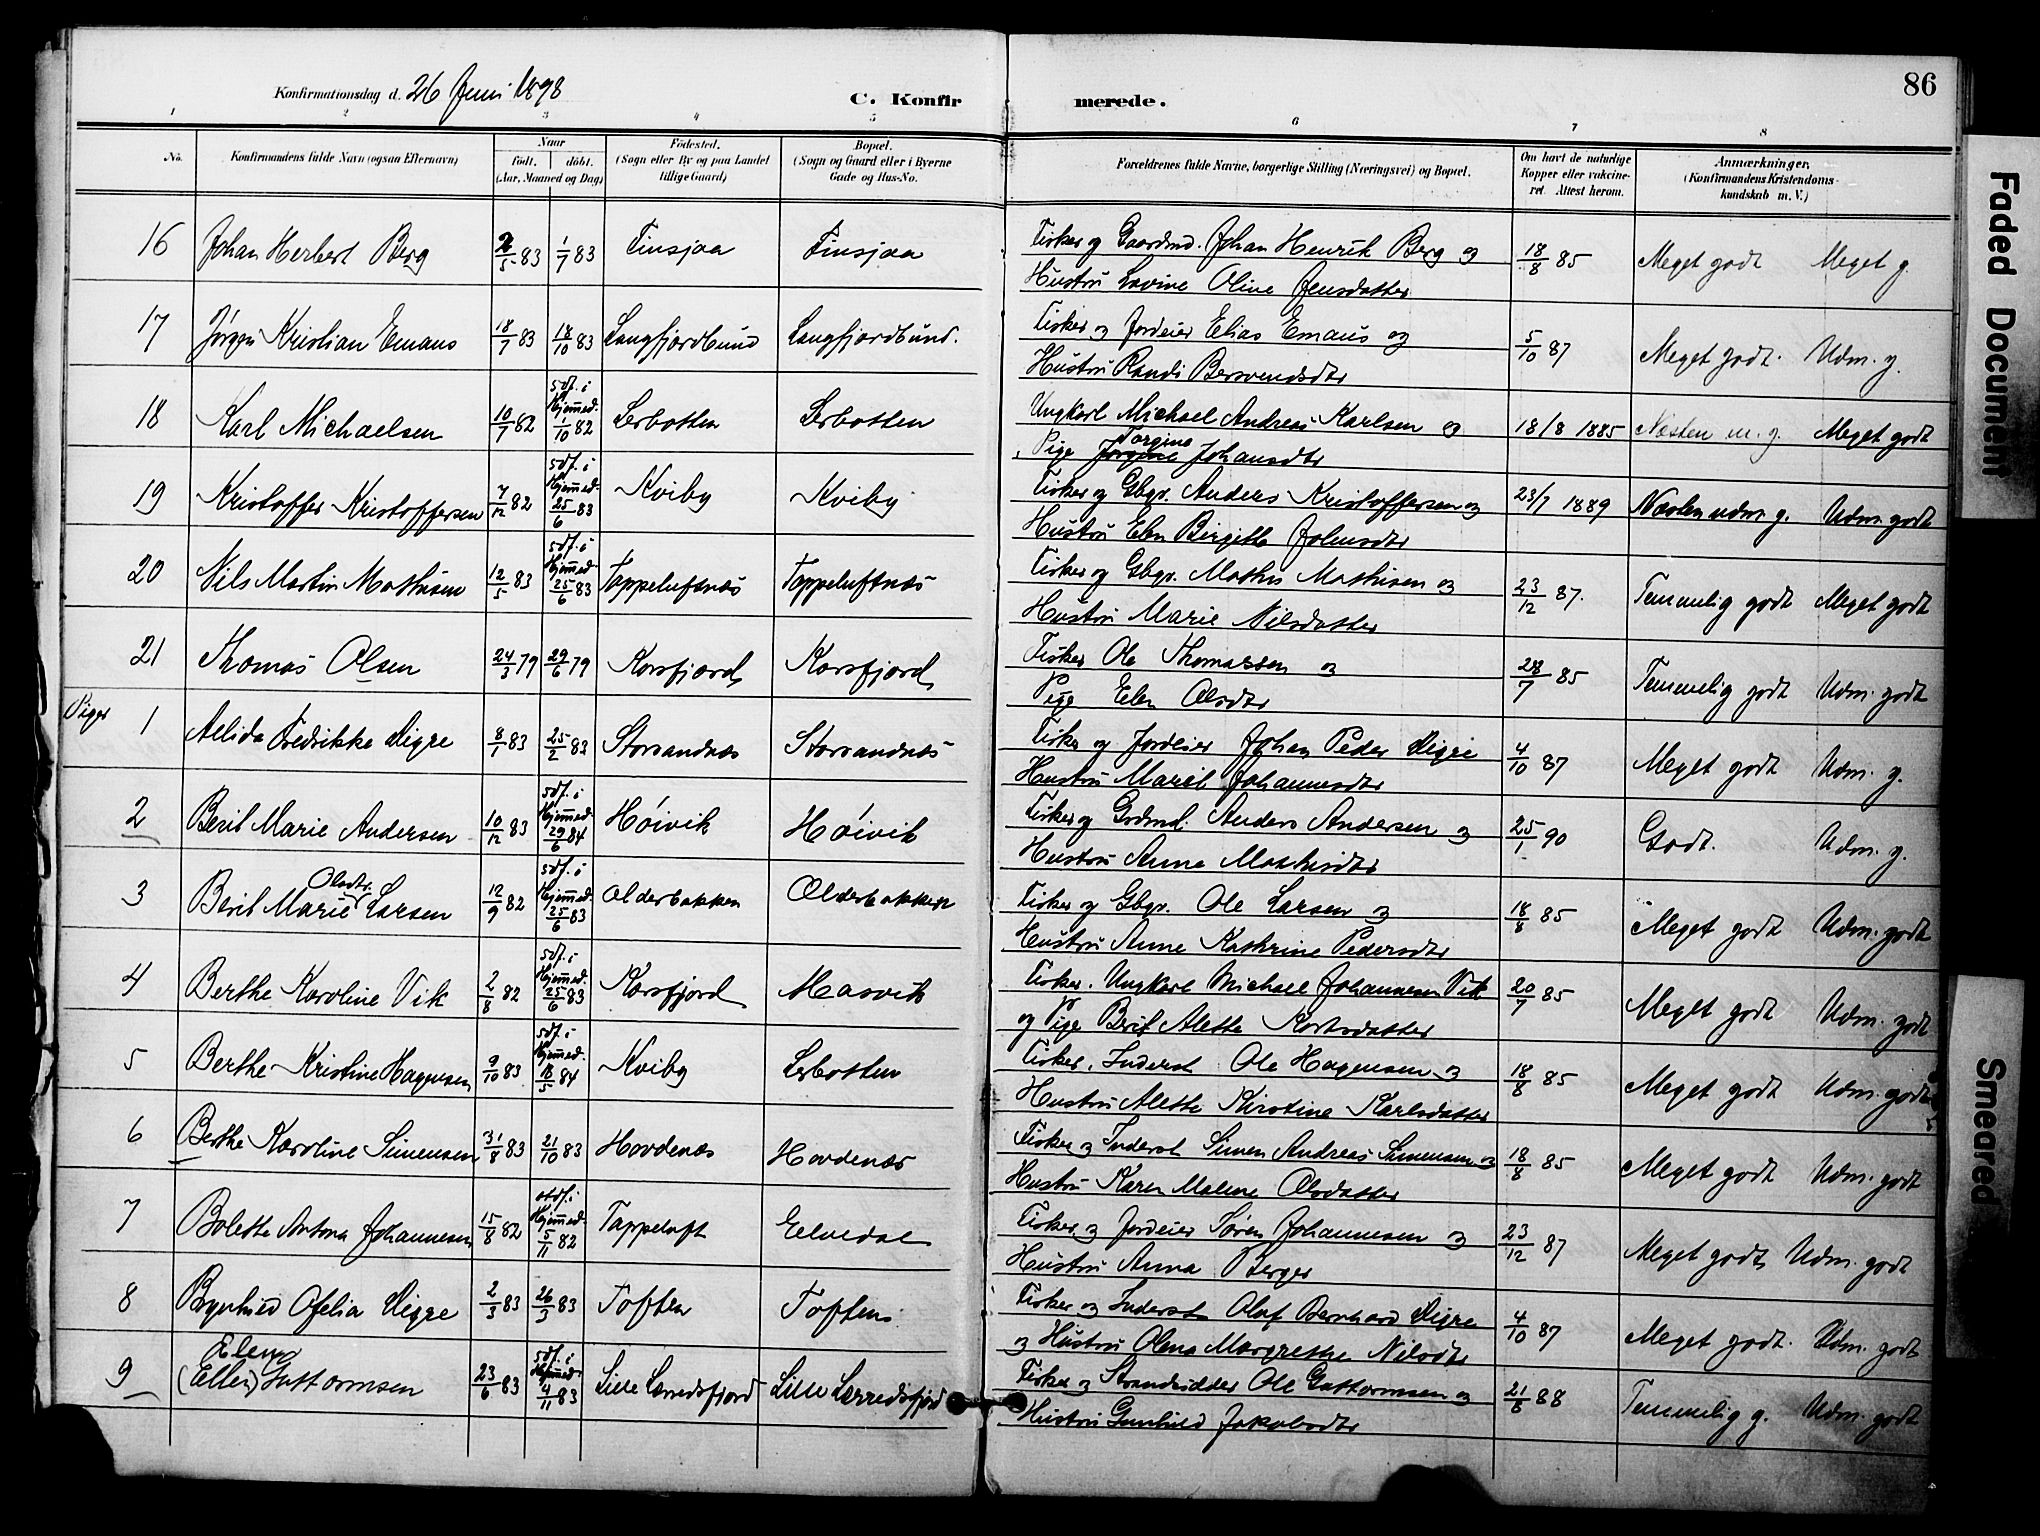 Konfirmationsdag d. 26 Juni 1898
C. Konfirmerede.
86
1 2 3 4 5 6 7 8
No.
Konfirmandens fulde Navn (ogsaa Efternavn)
Naar
født. døbt.
(Aar, Maaned og Dag)
Fødested.
(Sogn eller By og paa Landet
tillige Gaard)
Bopæl.
(Sogn og Gaard eller i Byerne
Gade og Hus-No.
Forældrenes fulde Navne, borgerlige Stilling (Næringsvei) og Bopæl.
Om havt de naturlige
Kopper eller vakcine-
ret. Attest herom.
Anmærkninger.
(Konfirmandens Kristendoms-
kundskab m. V.)
16 Johan Herbert Berg 2/5 83 1/7 83 Finsjaa Finsjaa Fisker og Gaardmd. Johan Henrik Berg og 18/8 85 Meget godt Meget g.
Hustru Lovine Oline Jensdatter
17 Jørgen Kristian Emaus 18/7 83 18/10 83 Langfjordbund Langfjordbund. Fisker og Jordeier Elias Emaus og 5/10 87 Meget godt. Udm. g.
Hustru Randi Bersvendsdtr
18 Karl Michaelsen 10/7 82 Hjemmed. 1/10 82 Lerbotten Lerbotten Ungkarl Michael Andreas Karlsen og 18/8 1885 Næsten m. g. Meget godt
Pige Jorgine Torgine Johansdtr
19 Kristoffer Kristoffersen 7/12 82 Hjemmed. 25/6 83 Kviby Kviby Fisker og Gbgr. Anders Kristoffersen og 23/7 1889 Næsten udm. g. Udm. godt
Hustru Elen Birgitte Johnsdtr
20 Nils Martin Mathisen 12/5 83 Hjemmed. 25/6 83 Tappeluftnæs Tappeluftnæs Fisker og Gbgr. Mathis Mathisen og 23/12 87. Temmelig godt Meget godt
Hustru Marie Nilsdatter
21 Thomas Olsen 24/3 79 29/6 79 Korsfjord Korsfjord Fisker Ole Thomassen og 28/7 85 Temmelig godt Udm. godt
Pige Elen Olsdtr
Piger
1 Aelida Fredrikke Digre 8/1 83 25/2 83 Storsandnæs Storsandnæs Fisker og Jordeier Johan Peder Digre 4/10 87 Meget godt Udm. g.
Hustru Marit Johannesdtr
2 Berit Marie Andersen 10/12 83 Hjemmed. 29/6 84 Høivik Høivik Fisker og Grdmd. Anders Andersen og 25/1 90 Godt. Udm. g.
Hustru Anna Mathisdtr
3 Berit Marie Olsdtr. Larsen 12/9 82 Hjemmed. 25/6 83 Olderbakken Olderbakken Fisker og Gbgr. Ole Larsen og 18/8 85 Meget godt Udm. godt
Hustru Anne Kathrine Pedersdtr
4 Berthe Karoline Vik 2/8 82 Hjemmed. 25/6 83 Korsfjord Masvik Fisker. Ungkarl Michael Johannesen Vik 20/7 85 Meget godt Udm. godt
og Pige Berit Alette
5 Berthe Kristine Hagensen 9/10 83 Hjemmed. 18/5 84 Kviby Lerbotten Fisker, Inderst Ole Hagensen og 18/8 85 Meget godt Udm. godt
Hustru Alette Kirstine Karlsdatter
6 Berthe Karoline Simensen 31/8 83 21/10 83 Hovdenæs Hovdenæs Fisker og Inderst Simen Andreas Simensen og 18/8 85 Meget godt Udm. godt
Hustru Karen Malene Olsdatter
7 Bolette Antona Johannesen 15/8 82 Hjemmed. 5/11 82 Tappeluft Eelvedal Fisker og Jordeier Søren Johannesen og 23/12 87 Meget godt Udm. godt
Hustru Anna Berger
8 Brynhild Ofelia Digre 2/3 83 26/3 83 Toften Toften Fisker og Inderst Olaf Bernhard Digre 4/10 87 Meget godt. Udm. godt
og Hustru Olena Margrethe Nilsdtr
9 Elen (Ellen) Guttormsen 23/6 83 Hjemmed. 4/11 83 Lille Lerredsfjord Lille Lerredsfjord Fisker og Strandsidder Ole Guttormsen og 21/8 88 Temmelig g. Udm. godt
Hustru Gunhild Jakobsdtr
Faded Document
Smeared